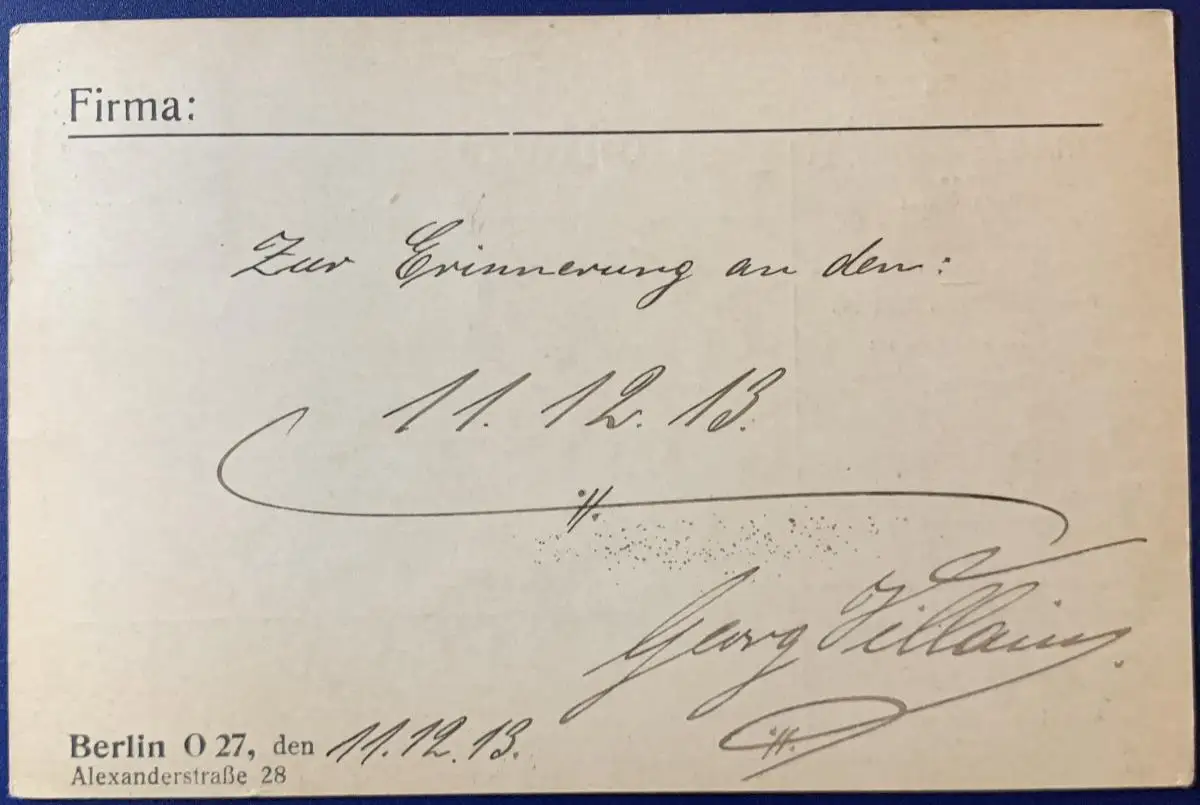 Firma:
Zur Erinnerung an den:
11. 12. 13.
Georg Villain
Berlin O 27, den 11.12.13.
Alexanderstraße 28